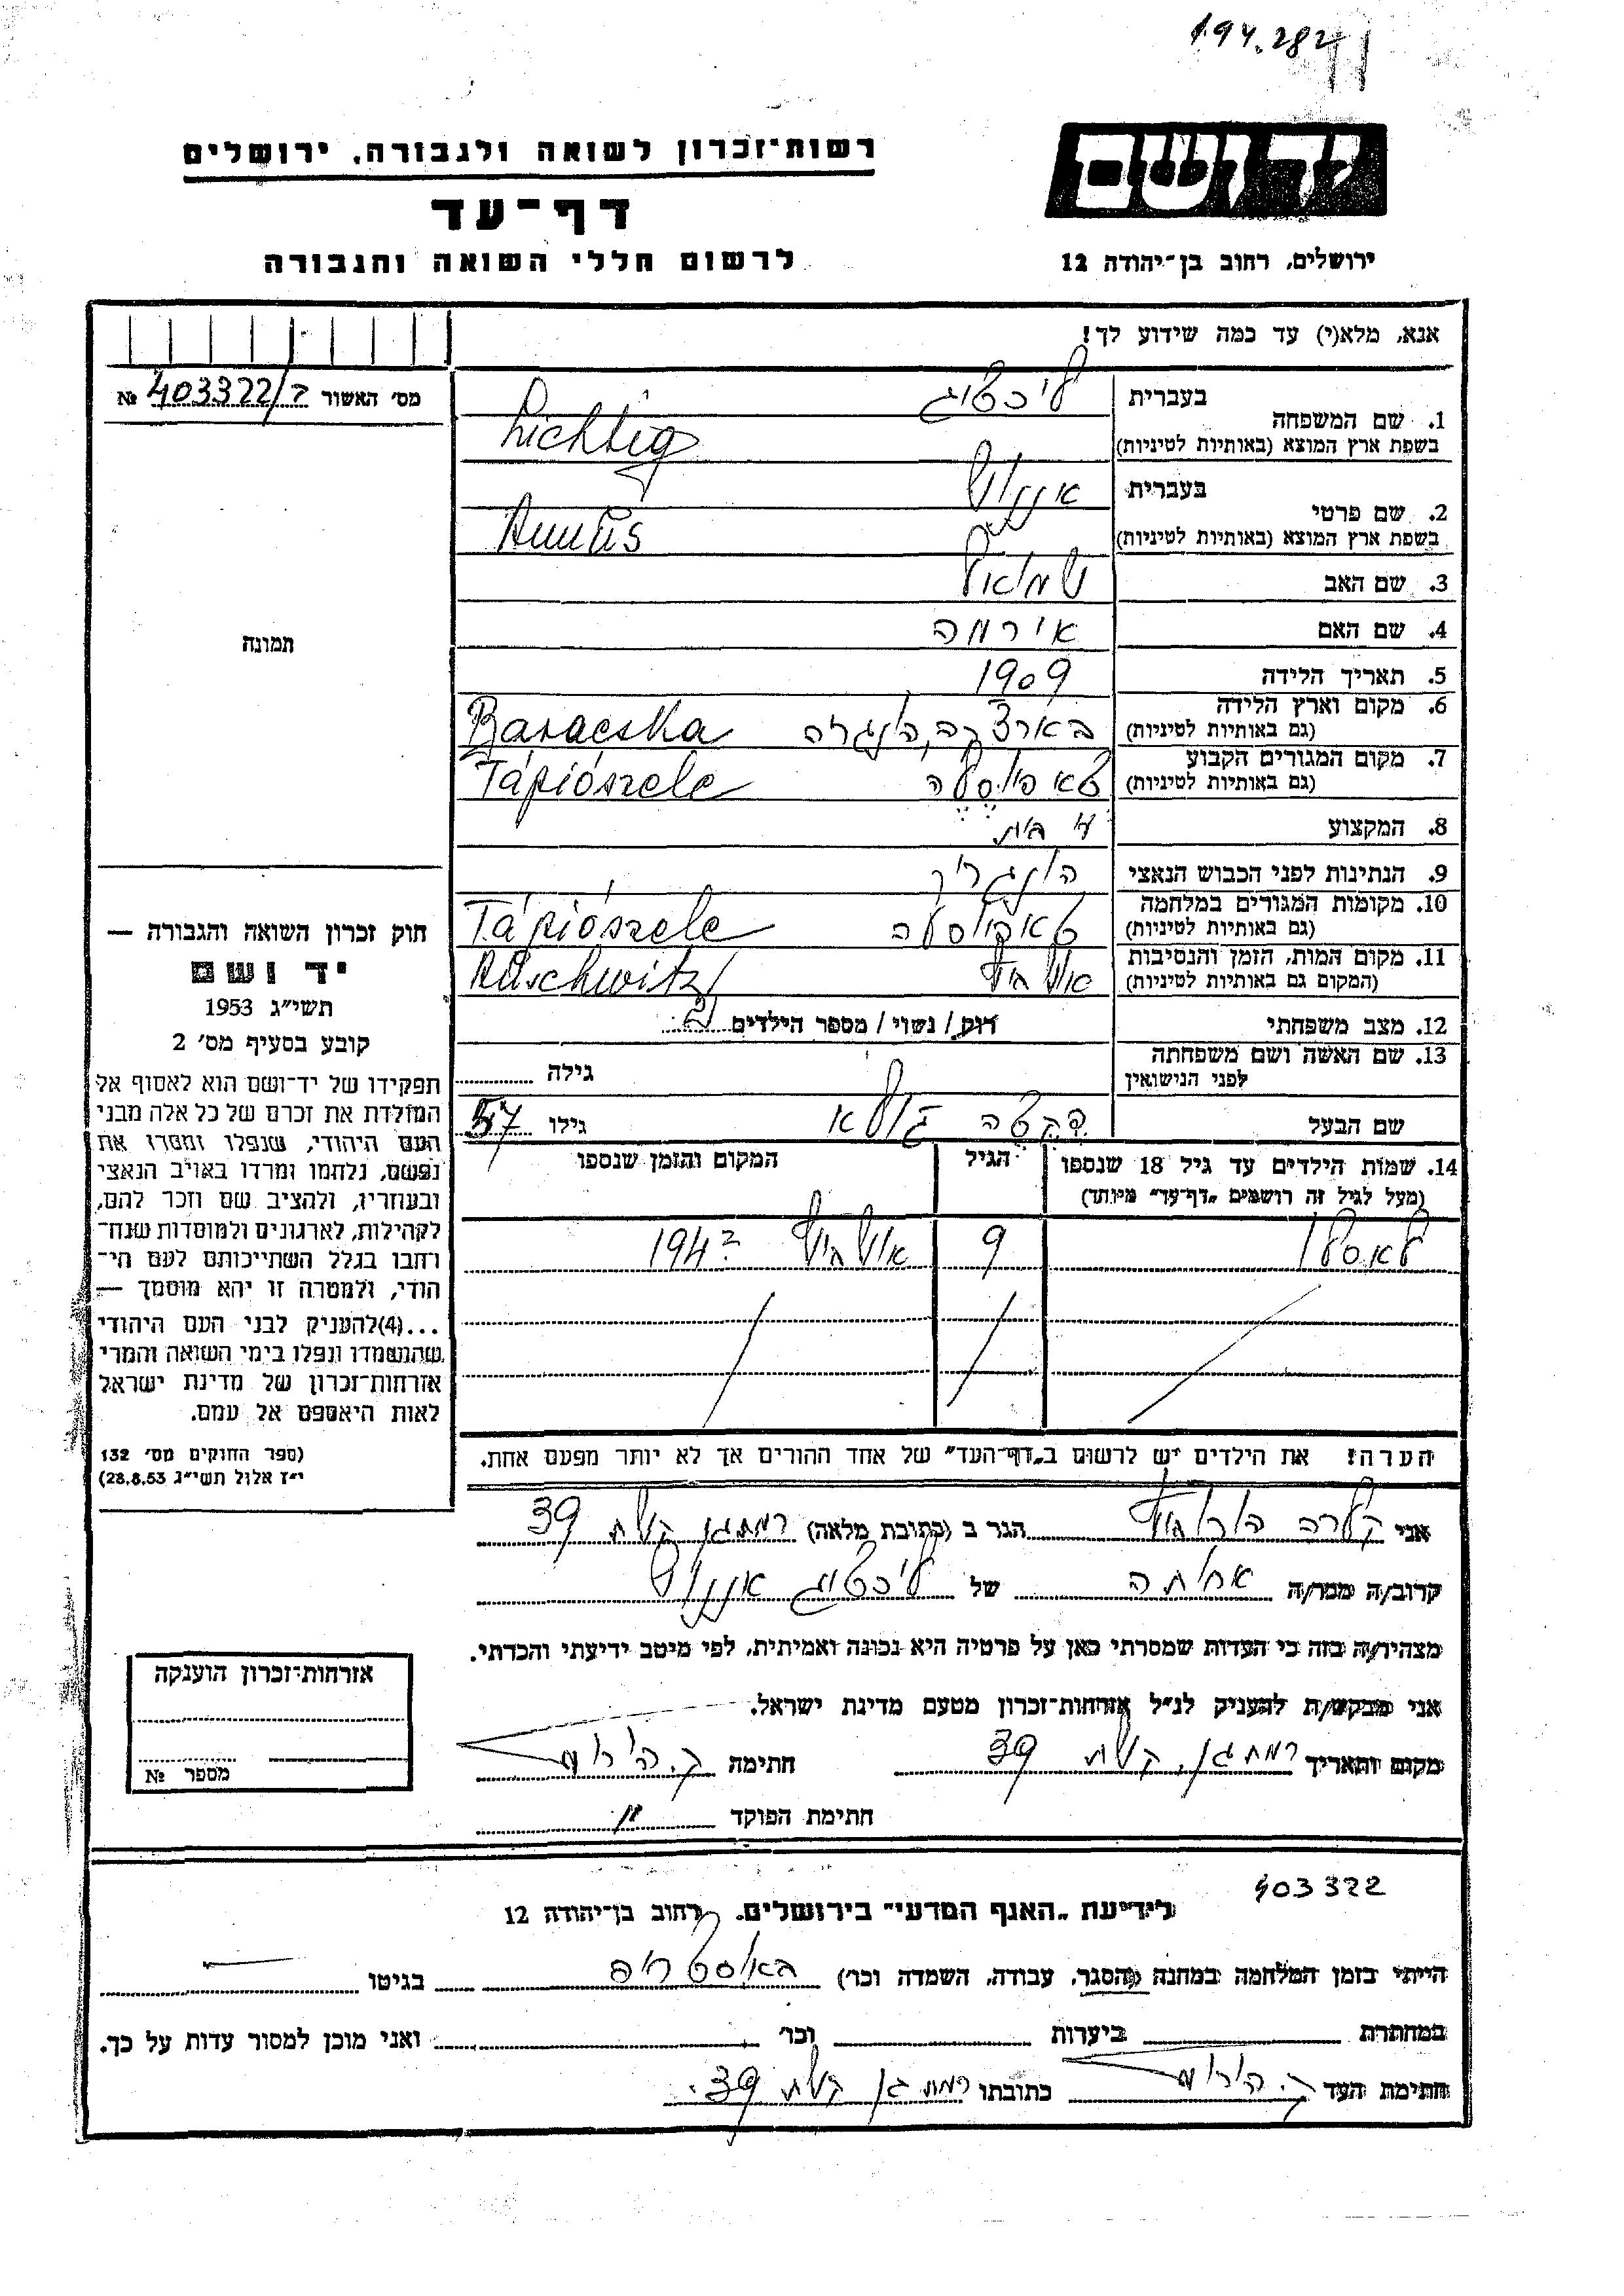 194.282
יד ושם
רשות־זכרון לשואה ולגבורה, ירושלים
דף־עד
לרשום חללי השואה והגבורה
ירושלים, רחוב בן־יהודה 12
אנא, מלא(י) עד כמה שידוע לך!
מס׳ האשור 403322/ № 
1. שם המשפחה
בעברית ליכטיג
בשפת ארץ המוצא (באותיות לטיניות) Lichtig
2. שם פרטי
בעברית
בשפת ארץ המוצא (באותיות לטיניות)
3. שם האב שמואל
4. שם האם אירמה
5. תאריך הלידה 1909
6. מקום וארץ הלידה בארצקה, הונגריה Baracska
(גם באותיות לטיניות)
7. מקום המגורים הקבוע טאפיוסלה Tápiószele
(גם באותיות לטיניות)
8. המקצוע ע. בית
9. הנתינות לפני הכבוש הנאצי
10. מקומות המגורים במלחמה טאפיוסלה Tápiószele
(גם באותיות לטיניות)
11. מקום המות, הזמן והנסיבות אושביץ Auschwitz
(המקום גם באותיות לטיניות)
12. מצב משפחתי רוק/ נשוי/ מספר הילדים 2
13. שם האשה ושם משפחתה גילה
לפני הנישואין
שם הבעל גילו 37
14. שמות הילדים עד גיל 18 שנספו הגיל המקום והזמן שנספו
(מעל לגיל זה רושמים „דף־עד״ מיוחד)
לאסלו 9 אושביץ 194
הערה! את הילדים יש לרשום ב„דף־העד״ של אחד ההורים אך לא יותר מפעם אחת.
תמונה
חוק זכרון השואה והגבורה —
יד ושם
תשי״ג 1953
קובע בסעיף מס׳ 2
תפקידו של יד־ושם הוא לאסוף אל
המולדת את זכרם של כל אלה מבני
העם היהודי, שנפלו ומסרו את
נפשם, נלחמו ומרדו באויב הנאצי
ובעוזריו, ולהציב שם וזכר להם,
לקהילות, לארגונים ולמוסדות שנח־
רחבו בגלל השתייכותם לעם הי־
הודי, ולמטרה זו יהא מוסמך —
...(4)להעניק לבני העם היהודי
שהושמדו ונפלו בימי השואה והמרי
אזרחות־זכרון של מדינת ישראל
לאות היאספם אל עמם.
(ספר החוקים מס׳ 132
י״ז אלול תשי״ג 28.8.53)
אני קלרה הגר ב (כתובת מלאה) רמת גן 39
קרוב/ה ממר/ה אחותה של ליכטיג
מצהיר/ה בזה כי העדות שמסרתי כאן על פרטיה היא נכונה ואמיתית, לפי מיטב ידיעתי והכרתי.
אני מבקש/ת להעניק לנ״ל אזרחות־זכרון מטעם מדינת ישראל.
מקום ותאריך רמת גן, 39 חתימה
חתימת הפוקד
אזרחות־זכרון הוענקה
מספר №
403322
לידיעת „האגף המדעי״ בירושלים, רחוב בן־יהודה 12
הייתי בזמן המלחמה במחנה (הסגר, עבודה, השמדה וכר) באוסטריה בגיטו
במחתרת ביערות וכר׳ ואני מוכן למסור עדות על כך.
חתימת העד כתובתו רמת גן 39.